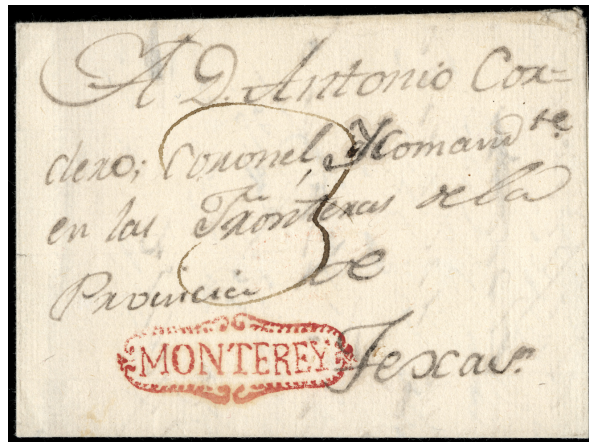 A D. Antonio Cor=
dero; Coronel, y Comandte
en las Fronteras de la
Provincia de
Texas.
MONTEREY
3